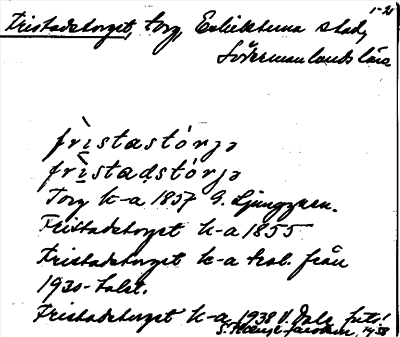 1-21
Fristadstorget, torg, Eskilstuna stad,
Södermanlands län
frìstastórjə
frìstadstórjə
Torg k-a 1857 G. Ljunggren.
Fristadstorget k-a 1855
Fristadstorget k-a tral. från
1930-talet.
Fristadstorget k-a 1938 V. Dals
S. 1938